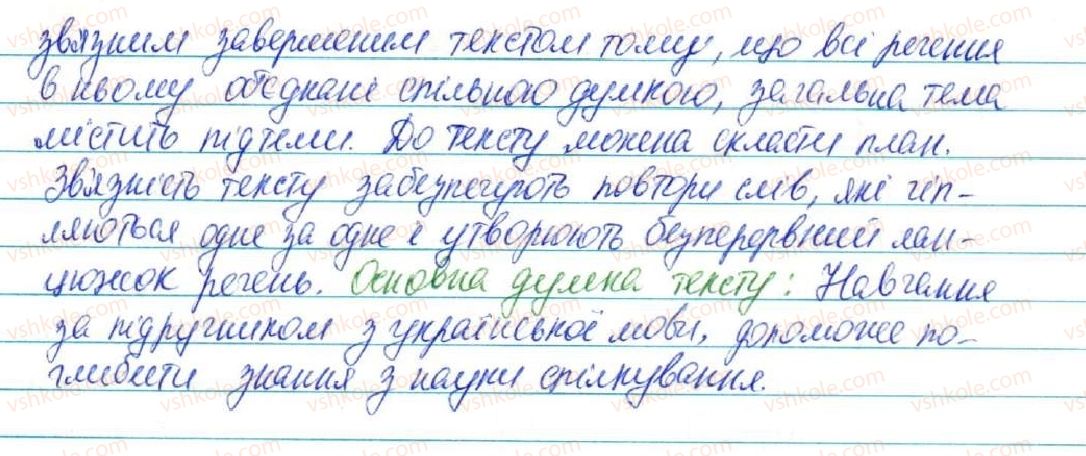 зв'язним завершеним текстом тому, що всі речення
в ньому об'єднані спільною думкою, загальна тема
містить підтеми. До тексту можна скласти план.
Зв'язність тексту забезпечують повтори слів, які чіп-
ляються одне за одне і утворюють безперервний лан-
цюжок речень. Основна думка тексту: Навчання
за підручником з української мови, допоможе по-
глибити знання з науки спілкування.